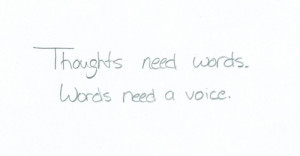 Thoughts need words.
Words need a voice.